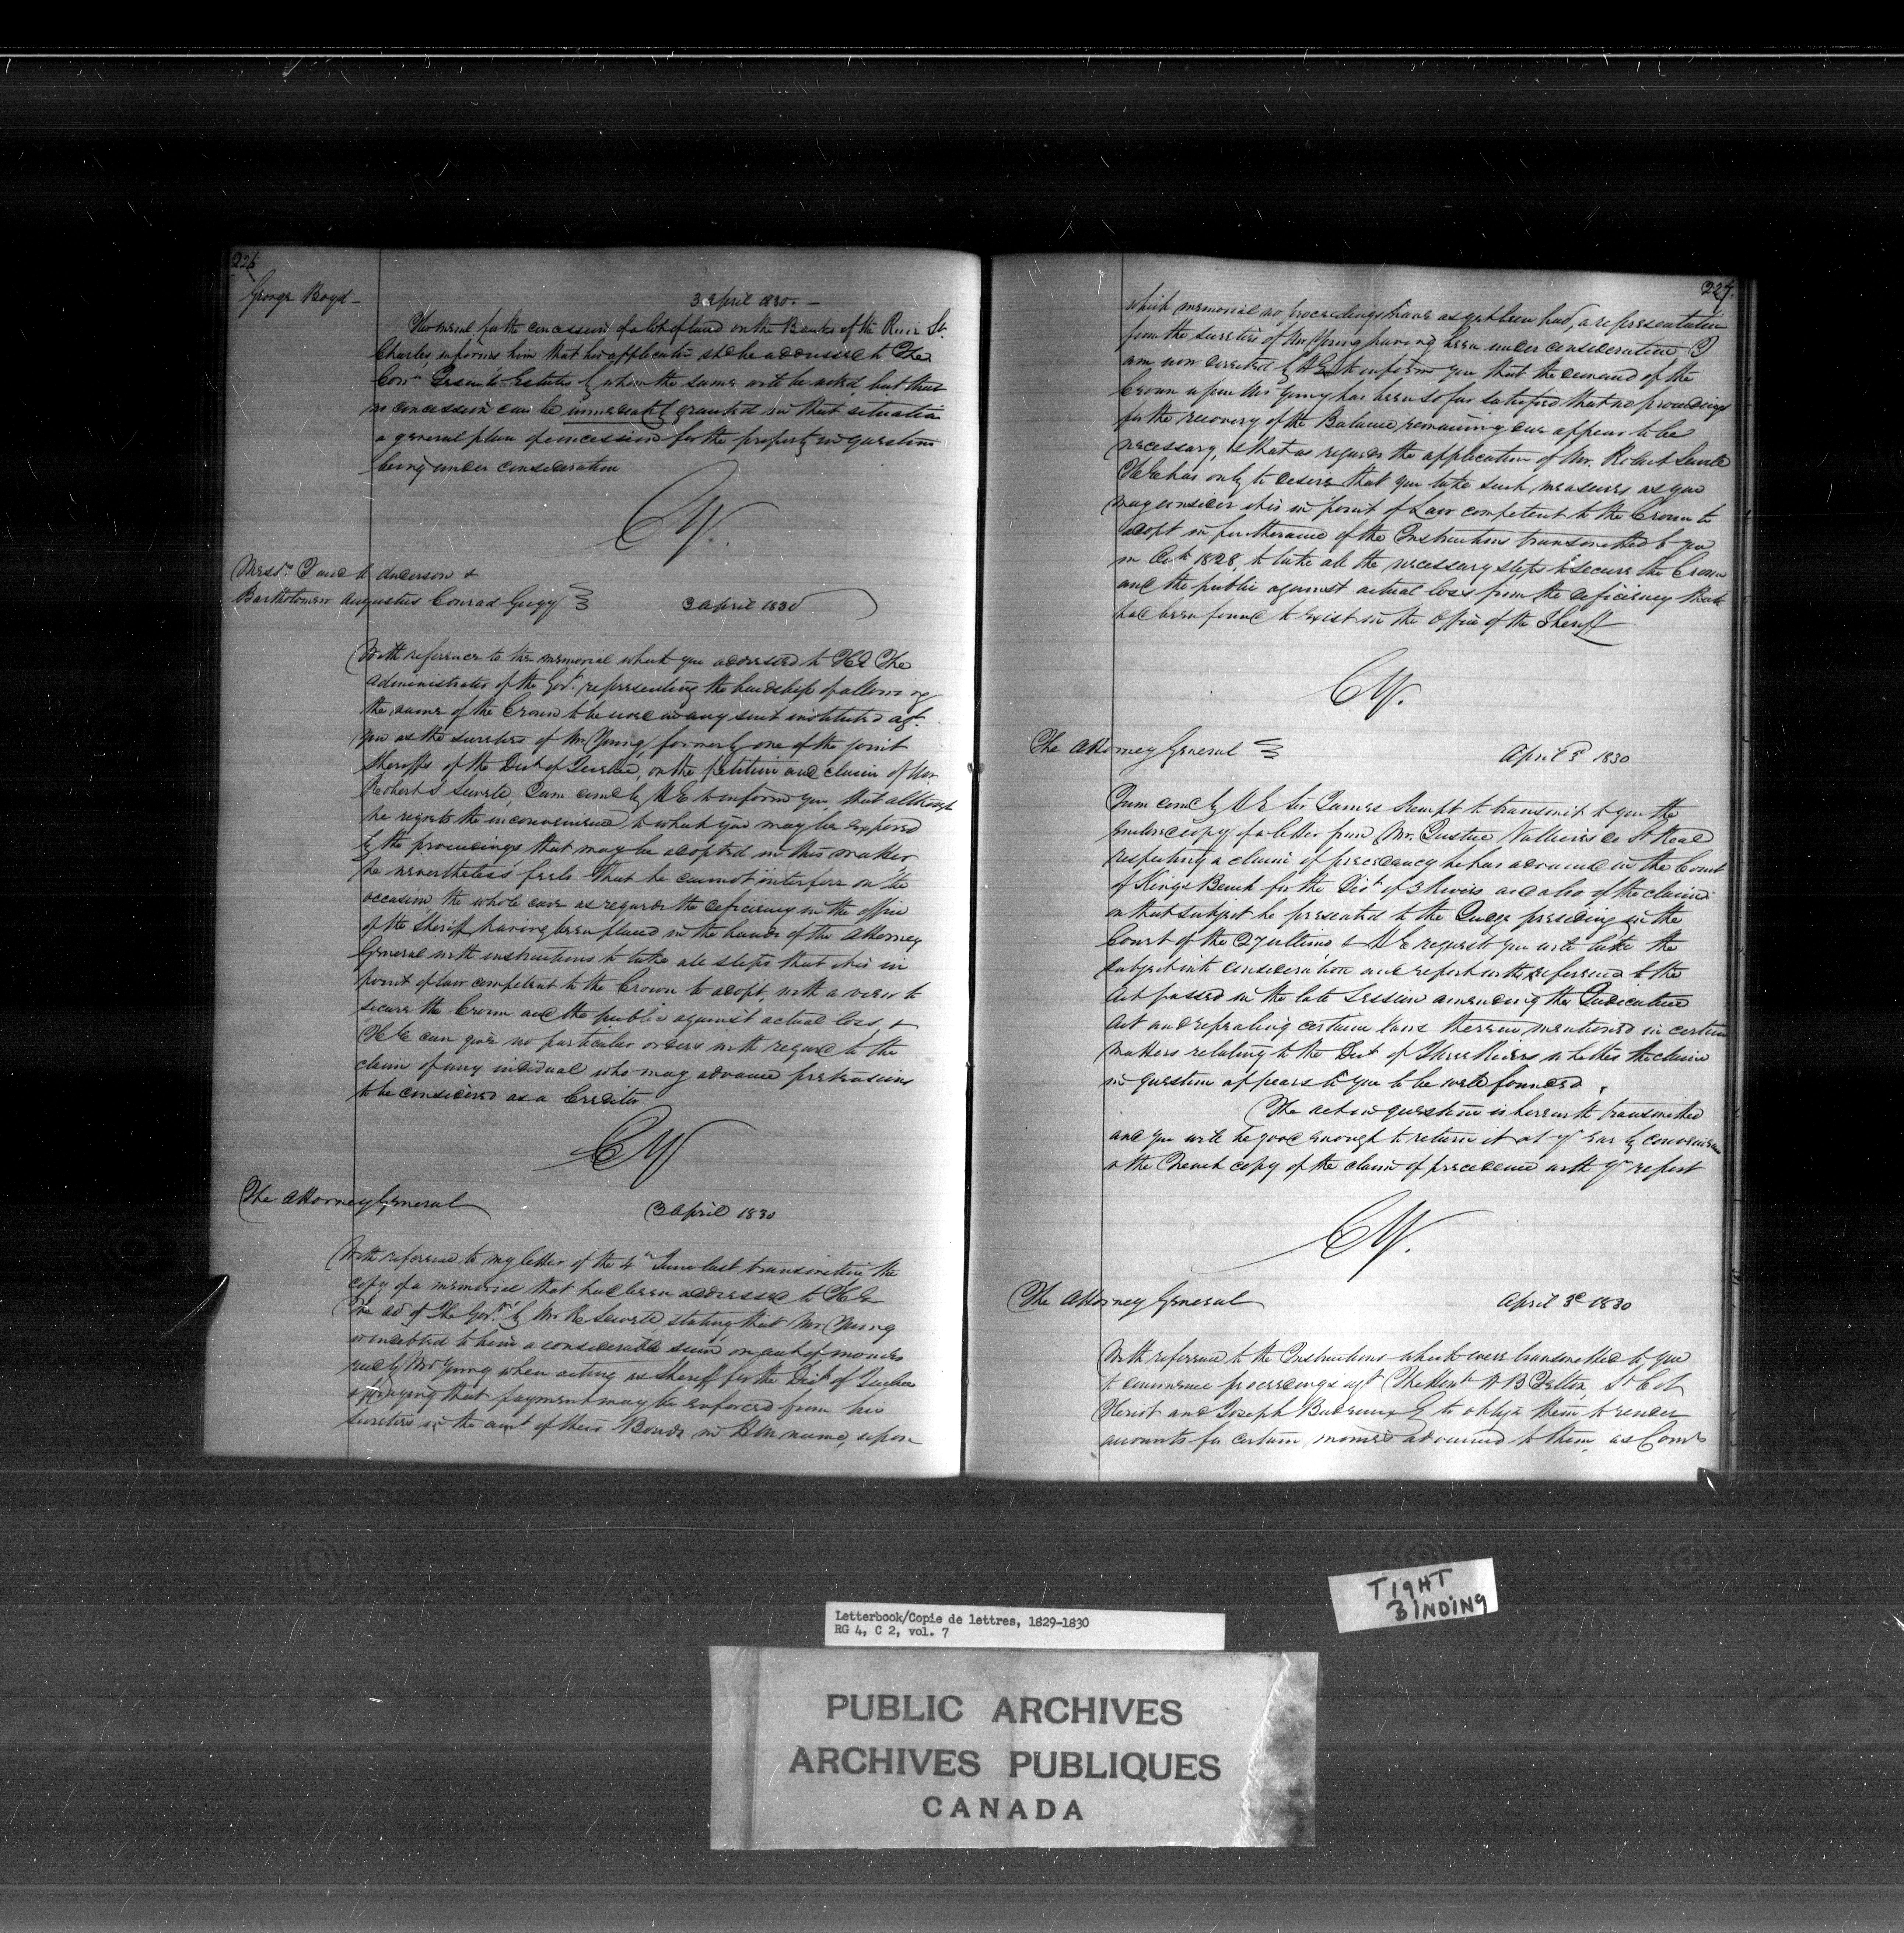 226
George Boyd –
3 April 1830. –
Memorial for the concession of a lot of land on the Banks of the River St.
Charles, informs him that his application shd be addressed to The
Comr Jesuits Estates by whom the same will be acted, but that
no concession can be immediately granted in that situation
a general plan of concession for the property in question
being under consideration
CY.
Messrs Anderson &
Bartholomew Augustus Conrad Gugy
3 April 1830
With reference to the memorial which you addressed to H E The
Administrator of the Govt. representing the hardship of allowing
the name of the Crown to be used in any suit instituted agt.
you as the sureties of Mr Young, formerly one of the joint
Sheriffs of the Dist of Quebec, on the petition and claim of Mr
Robert S Sewell, I am comd by H E to inform you that although
he regrets the inconvenience to which you may be exposed
by the proceedings that may be adopted in this matter
he nevertheless feels that he cannot interfere on the
occasion, the whole case as regards the deficiency in the office
of the Sheriff having been placed in the hands of the Attorney
General with instructions to take all steps that it is in
point of law competent to the Crown to adopt, with a view to
secure the Crown and the public against actual loss, &
H E can give no particular orders with regard to the
claim of any individual who may advance pretensions
to be considered as a Creditor
CY
The Attorney General
3 April 1830
With reference to my letter of the 4th June last transmitting the
copy of a memorial that had been addressed to H E
The ad of the Govt by Mr R Sewell, stating that Mr Young
is indebted to him a considerable sum on acct of monies
recd by Mr Young when acting as Sheriff for the Dist of Quebec
& praying that payment may be enforced from his
sureties in the amt of their Bonds in H M name, upon
227.
which memorial no proceedings have as yet been had, a representation
from the sureties of Mr Young having been under consideration, I
am now directed by H E to inform you that the demand of the
Crown upon Mr Young has been so far satisfied that no proceedings
for the recovery of the Balance remaining due appear to be
necessary, & that as regards the application of Mr. Robert Sewell
H E has only to desire that you take such measures as you
may consider it is in point of Law competent to the Crown to
adopt in furtherance of the Instructions transmitted to you
in Oct 1828, to take all the necessary steps to secure the Crown
and the public against actual loss from the deficiency that
had been found to exist in the Office of the Sheriff
CY.
The Attorney General
April 3d 1830
I am comd by H E Sir James Kempt to transmit to you the
enclosed copy of a letter from Mr. Justice Vallieres de St Real
respecting a claim of precedency he has advanced in the Court
of Kings Bench for the Dist of 3 Rivers and also of the claim
on that subject he presented to the Judge presiding in the
Court of the 27 ultimo & H E requests you will take the
subject into consideration and report with reference to the
Act passed in the late Session amending the Judicature
Act and repealing certain laws therein mentioned in certain
matters relating to the Dist of Three Rivers whether the claim
in question appears to you to be well founded.
The act in question is herewith transmitted
and you will be good enough to return it at yr early convenience
& the French copy of the claim of precedence with yr report
CY.
The Attorney General
April 3d 1830
With reference to the Instructions which were transmitted to you
to commence proceedings agt The Honble W B Felton, Lt Col
Heriot and Joseph to oblige them to render
accounts for certain monies advanced to them as Comrs
TIGHT
BINDING
Letterbook/Copie de lettres, 1829-1830
RG 4, C 2, vol. 7
PUBLIC ARCHIVES
ARCHIVES PUBLIQUES
CANADA